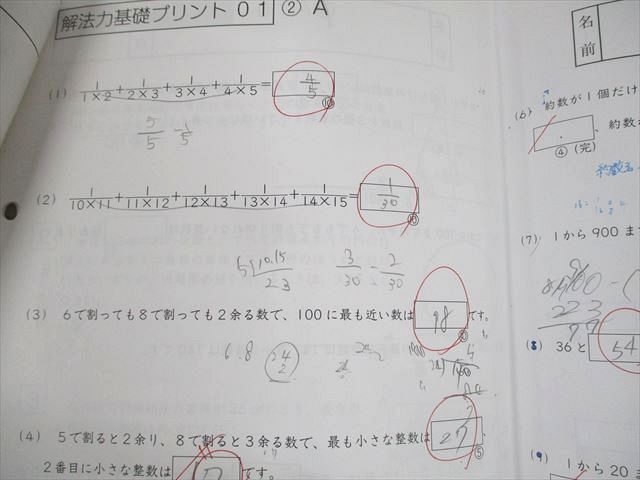 解法力基礎プリント 01 ② A
(1) 1/1×2+1/2×3+1/3×4+1/4×5= 4/5
⑩
5/5 1/5
(2) 1/10×11+1/11×12+1/12×13+1/13×14+1/14×15= 1/30
⑩
5)10.15
2 3
3/30 - 2/30
(3) 6で割っても8で割っても2余る数で、100に最も近い数は 98 です。
6.8 24
2
(4) 5で割ると2余り、8で割ると3余る数で、最も小さな整数は 27 、
⑤
2番目に小さな整数は です。
名
前
(6) 約数が1個だけ
、約数が
④(完)
約数名
(7) 1から900ま
223
77
(8) 36と 54
(9) 1から20ま